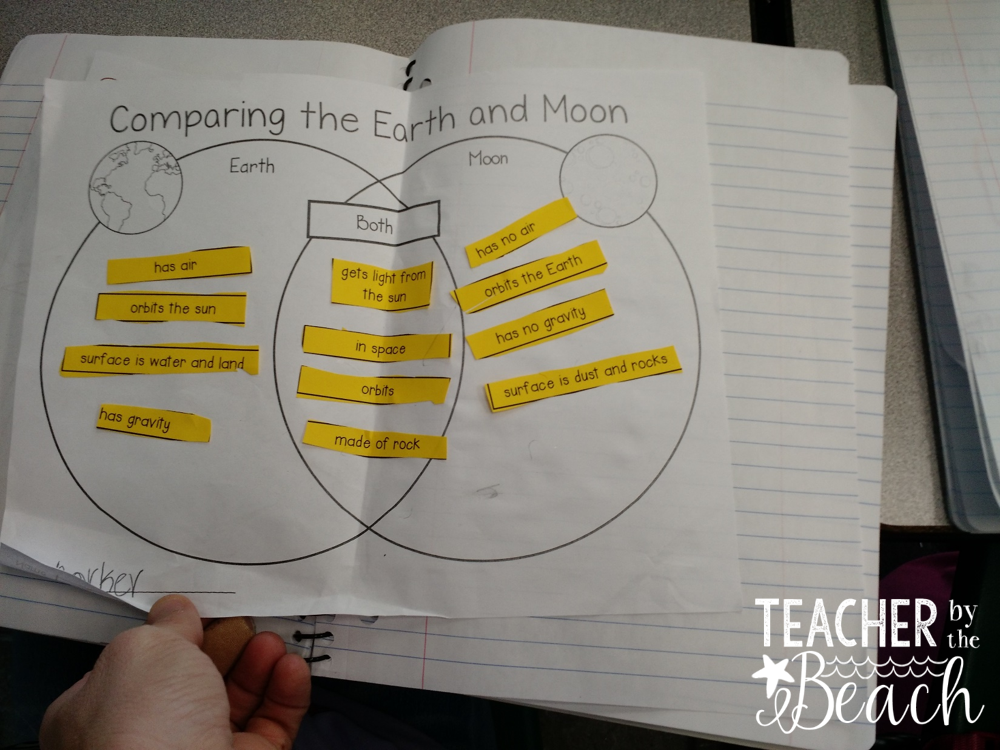 Comparing the Earth and Moon
Earth
Moon
Both
has air
orbits the sun
surface is water and land
has gravity
gets light from
the sun
in space
orbits
made of rock
has no air
orbits the Earth
has no gravity
surface is dust and rocks
parker
TEACHER by
the
Beach